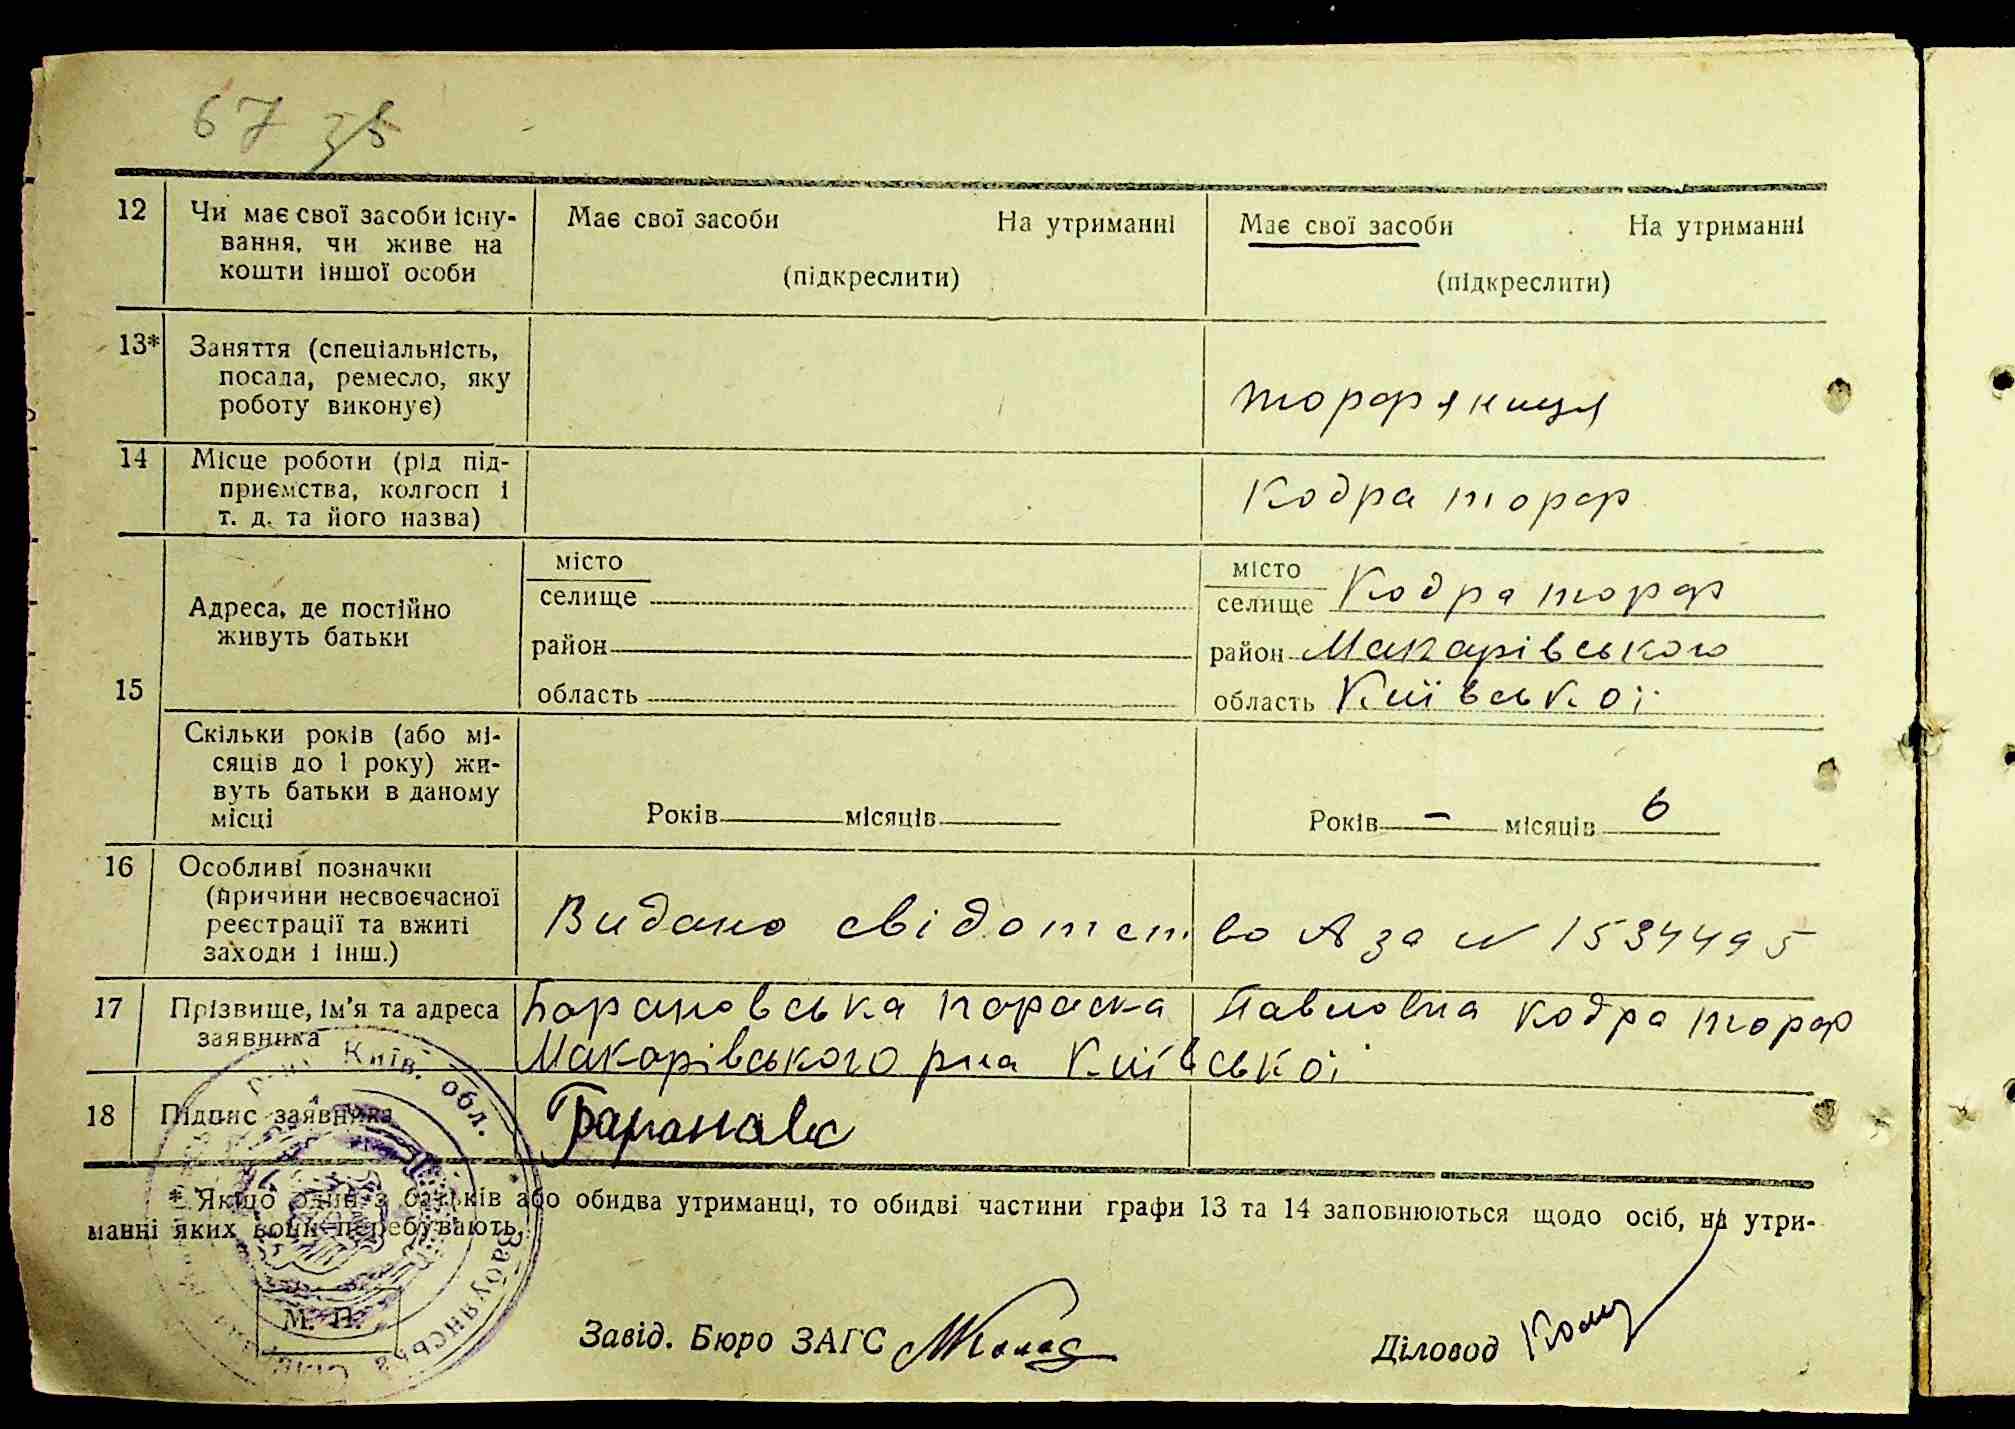 67 35
12 Чи має свої засоби існу- Має свої засоби На утриманні Має свої засоби На утриманні
вання, чи живе на
кошти іншої особи (підкреслити) (підкреслити)
13* Заняття (спеціальність,
посада, ремесло, яку торфяниця
роботу виконує)
14 Місце роботи (рід під-
приємства, колгосп і Кодра торф
т. д. та його назва)
місто місто
Адреса, де постійно селище селище Кодра торф
живуть батьки район район Макарівського
15 область область Київської
Скільки років (або мі-
сяців до 1 року) жи-
вуть батьки в даному Років місяців Років – місяців 6
місці
16 Особливі позначки
(причини несвоєчасної
реєстрації та вжиті Видано свідотство А за N 1534495
заходи і інш.)
17 Прізвище, ім'я та адреса Барановська Параска Павловна Кодра торф
заявника Макарівського р-на Київської
18 Підпис заявника
* Якщо один з батьків або обидва утриманці, то обидві частини графи 13 та 14 заповнюються щодо осіб, на утри-
манні яких вони перебувають.
Київ. обл.
Забуянська
М. П.
Завід. Бюро ЗАГС Діловод